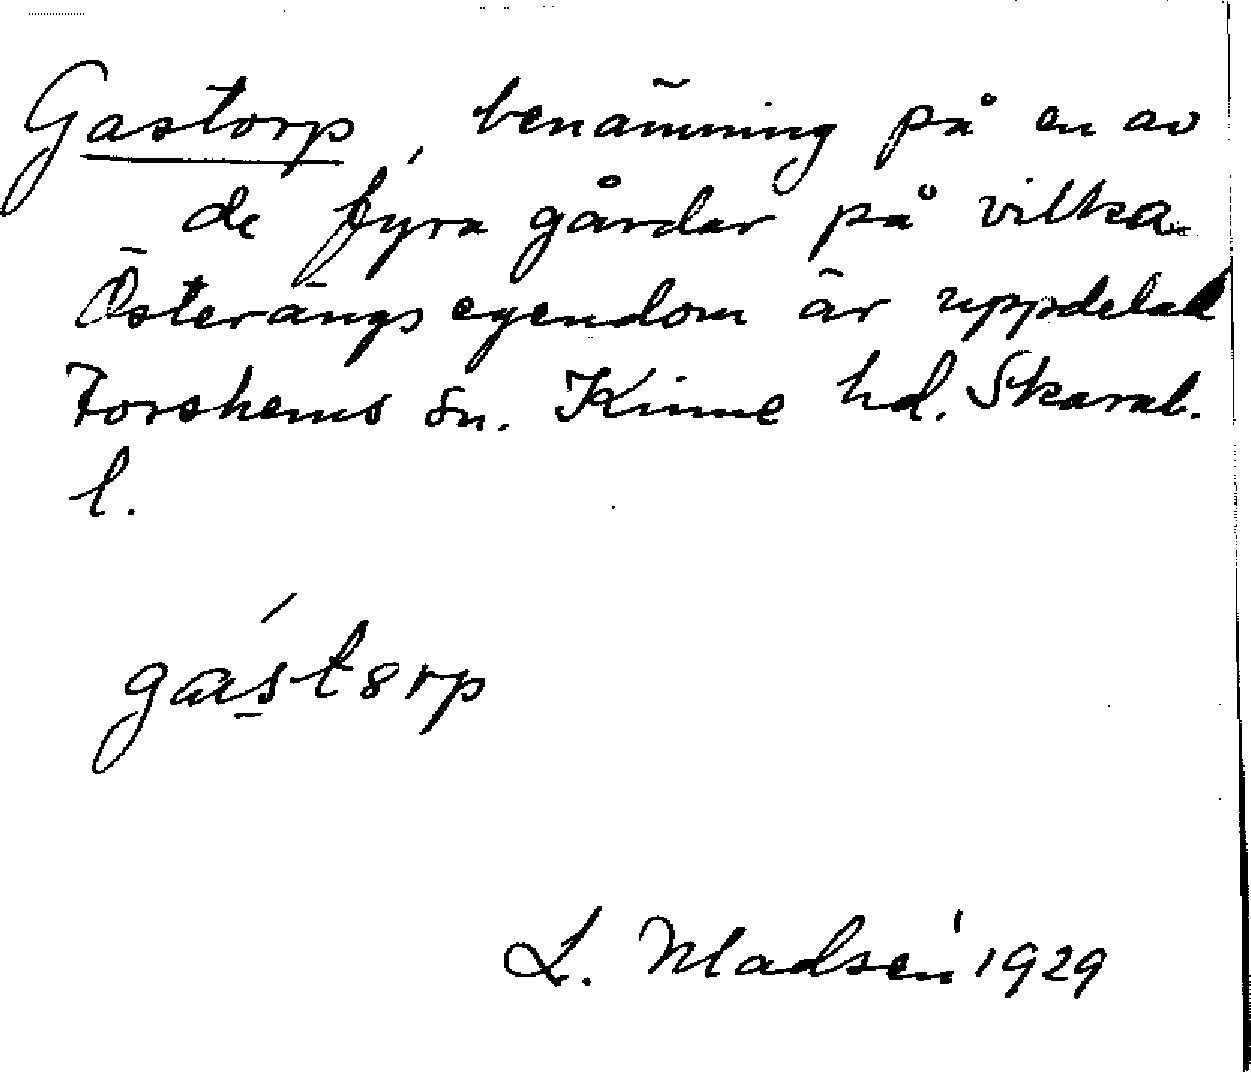 Gastorp, benämning på en av
de fyra gårdar på vilka
Österängs egendom är uppdelad
Forshems sn. Kinne hd. Skarab.
l.
gástorp
L. Madsén 1929